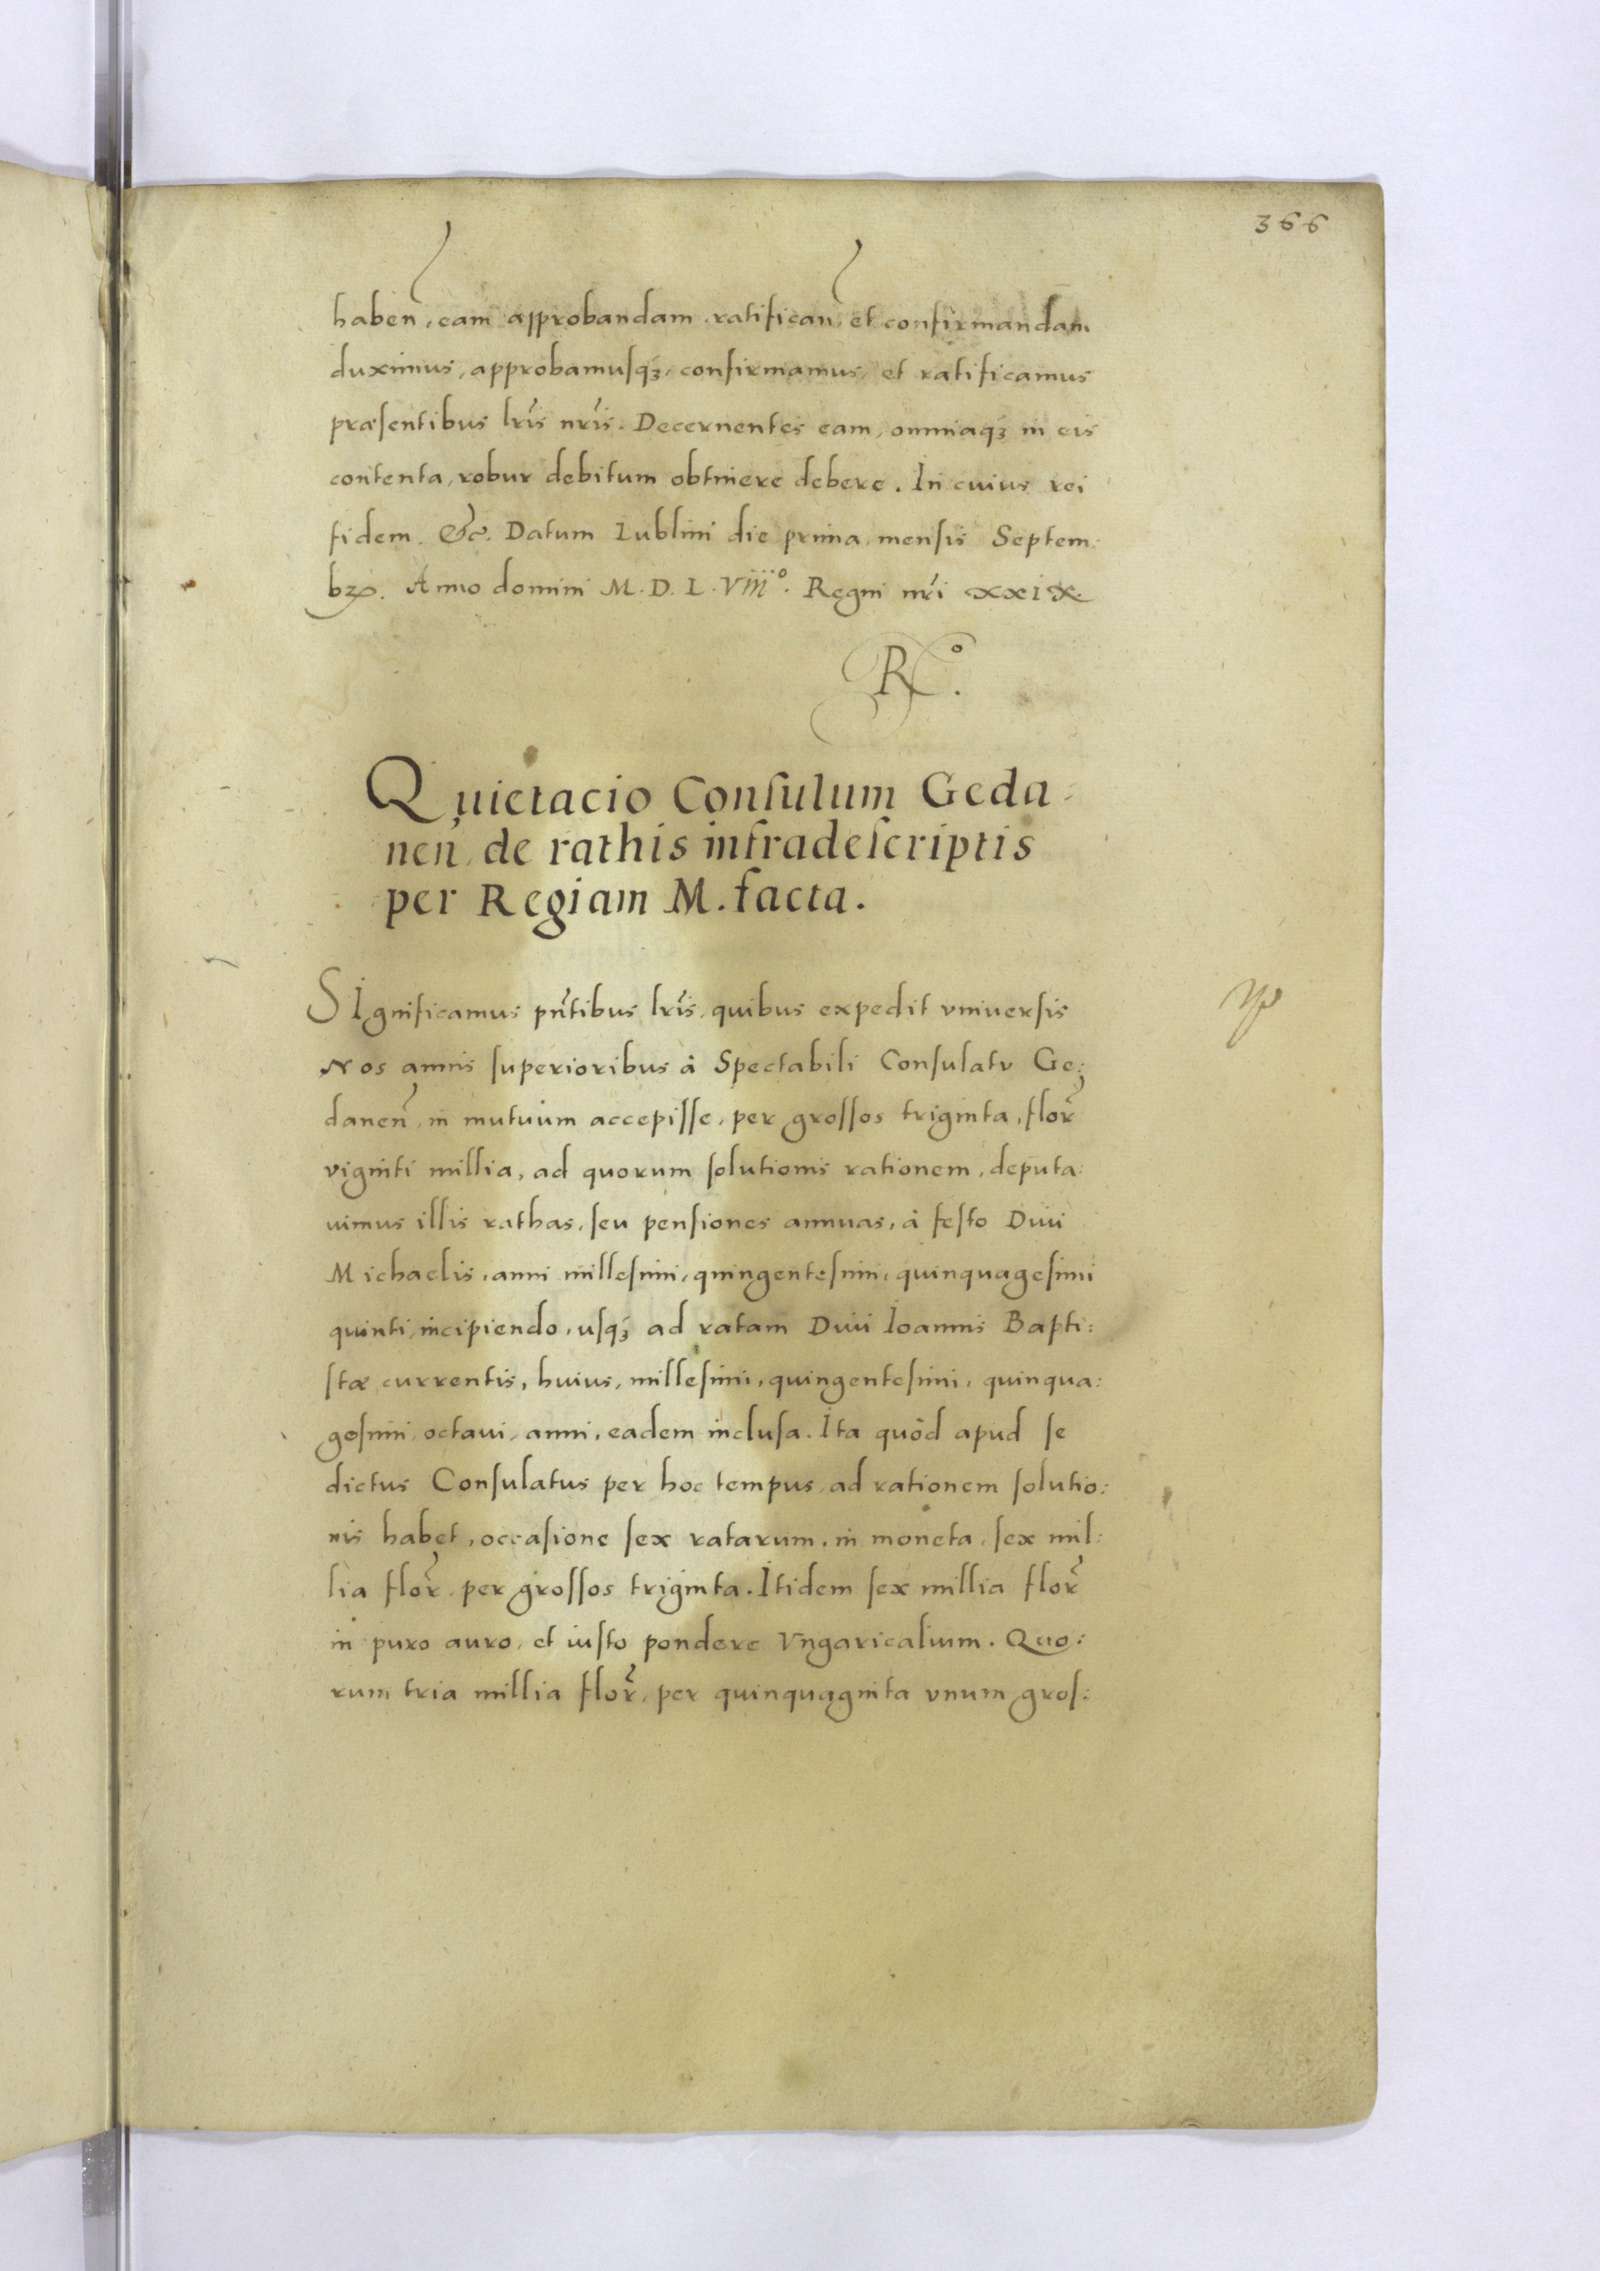 366
haben̄, eam approbandam, ratifican̄, et confirmandam
duximus, approbamusq́ꝫ, confirmamus, et ratificamus
præsentibus lr̄is nr̄is. Decernentes eam, omniaq́ꝫ in eis
contenta, robur debitum obtinere debere. In cuius rei
fidem. &c. Datum Lublini die prima mensis Septem:
bꝫ. Anno domini M.D.L.Viii°. Regni nr̄i xxix.
R°.
Quietacio Consulum Geda:
nen̄, de rathis infradescriptis
per Regiam M. facta.
SIgnificamus pn̄tibus lr̄is, quibus expedit vniuersis
Nos annis superioribus à Spectabili Consulatv Ge:
danen̄, in mutuum accepisse, per grossos triginta, flor̄
viginti millia, ad quorum solutionis rationem, deputa:
uimus illis rathas, seu pensiones annuas, à festo Diui
Michaelis, anni millesimi, quingentesimi, quinquagesimi
quinti, incipiendo, usq́ꝫ ad ratam Diui Ioannis Bapti:
stæ currentis, huius, millesimi, quingentesimi, quinqua:
gesimi, octaui, anni, eadem inclusa. Ita quòd apud se
dictus Consulatus per hoc tempus, ad rationem solutio:
nis habet, occasione sex ratarum, in moneta, sex mil:
lia flor̄ per grossos triginta. Itidem sex millia flor̄
in puro auro, et iusto pondere Vngaricalium. Quo:
rum tria millia flor̄, per quinquaginta vnum gros: